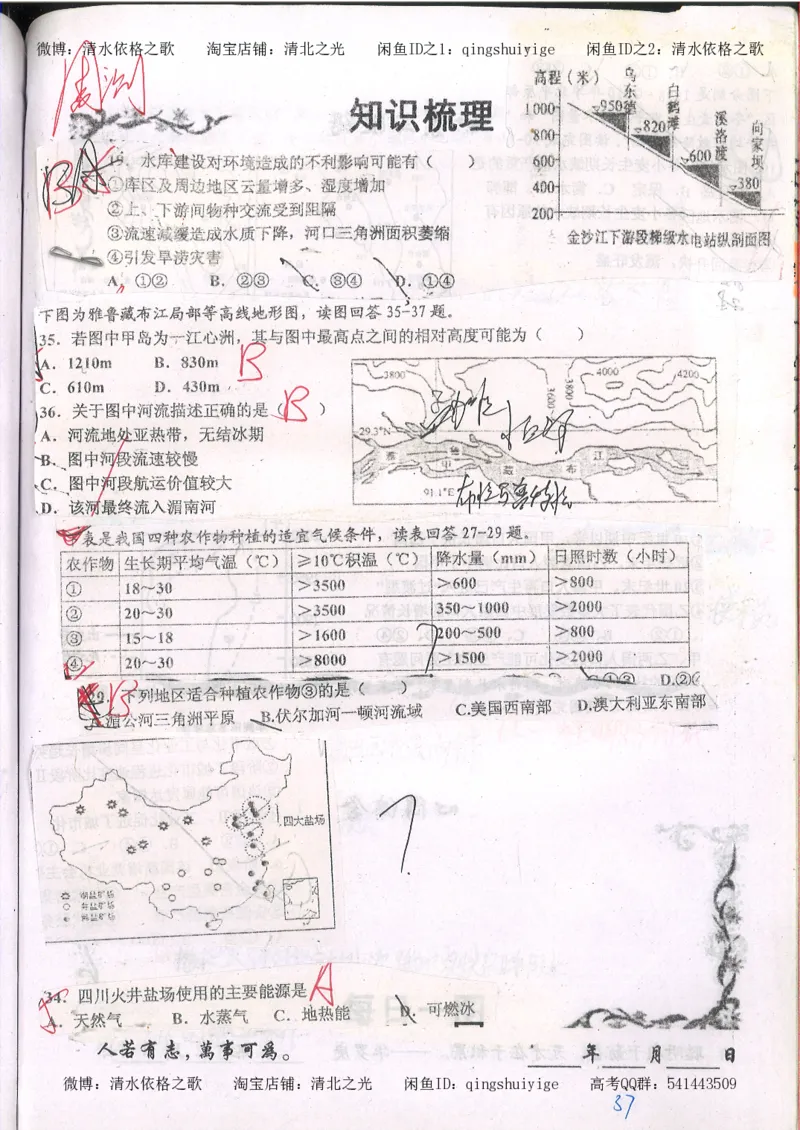 微博：清水依格之歌 淘宝店铺：清北之光 闲鱼ID之1：qingshuiyige 闲鱼ID之2：清水依格之歌
周测
知识梳理
高程（米）
乌东德
白鹤滩
溪洛渡
向家坝
1000
800
600
400
200
950
820
600
380
金沙江下游段梯级水电站纵剖面图
BA
19．水库建设对环境造成的不利影响可能有（ ）
①库区及周边地区云量增多、湿度增加
②上、下游间物种交流受到阻隔
③流速减缓造成水质下降，河口三角洲面积萎缩
④引发旱涝灾害
A．①② B．②③ C．③④ D．①④
下图为雅鲁藏布江局部等高线地形图，读图回答35-37题。
35．若图中甲岛为一江心洲，其与图中最高点之间的相对高度可能为（ ）
A．1210m B．830m B
C．610m D．430m
36．关于图中河流描述正确的是（B ）
A．河流地处亚热带，无结冰期
B．图中河段流速较慢
C．图中河段航运价值较大
D．该河最终流入湄南河
3800
3600
3800
4000
4200
29.3°N
雅 鲁 藏 布 江
甲
91.1°E
下表是我国四种农作物种植的适宜气候条件，读表回答27-29题。
农作物 生长期平均气温（℃） ≥10℃积温（℃） 降水量（mm） 日照时数（小时）
① 18～30 >3500 >600 >800
② 20～30 >3500 350～1000 >2000
③ 15～18 >1600 200～500 >800
④ 20～30 >8000 >1500 >2000
29．下列地区适合种植农作物③的是（ ）
B
A.湄公河三角洲平原 B.伏尔加河一顿河流域 C.美国西南部 D.澳大利亚东南部
四大盐场
湖盐矿场
井盐矿场
34．四川火井盐场使用的主要能源是 A
A．天然气 B．水蒸气 C．地热能 D．可燃冰
人若有志，萬事可為。
年 月 日
微博：清水依格之歌 淘宝店铺：清北之光 闲鱼ID：qingshuiyige 高考QQ群：541443509
37